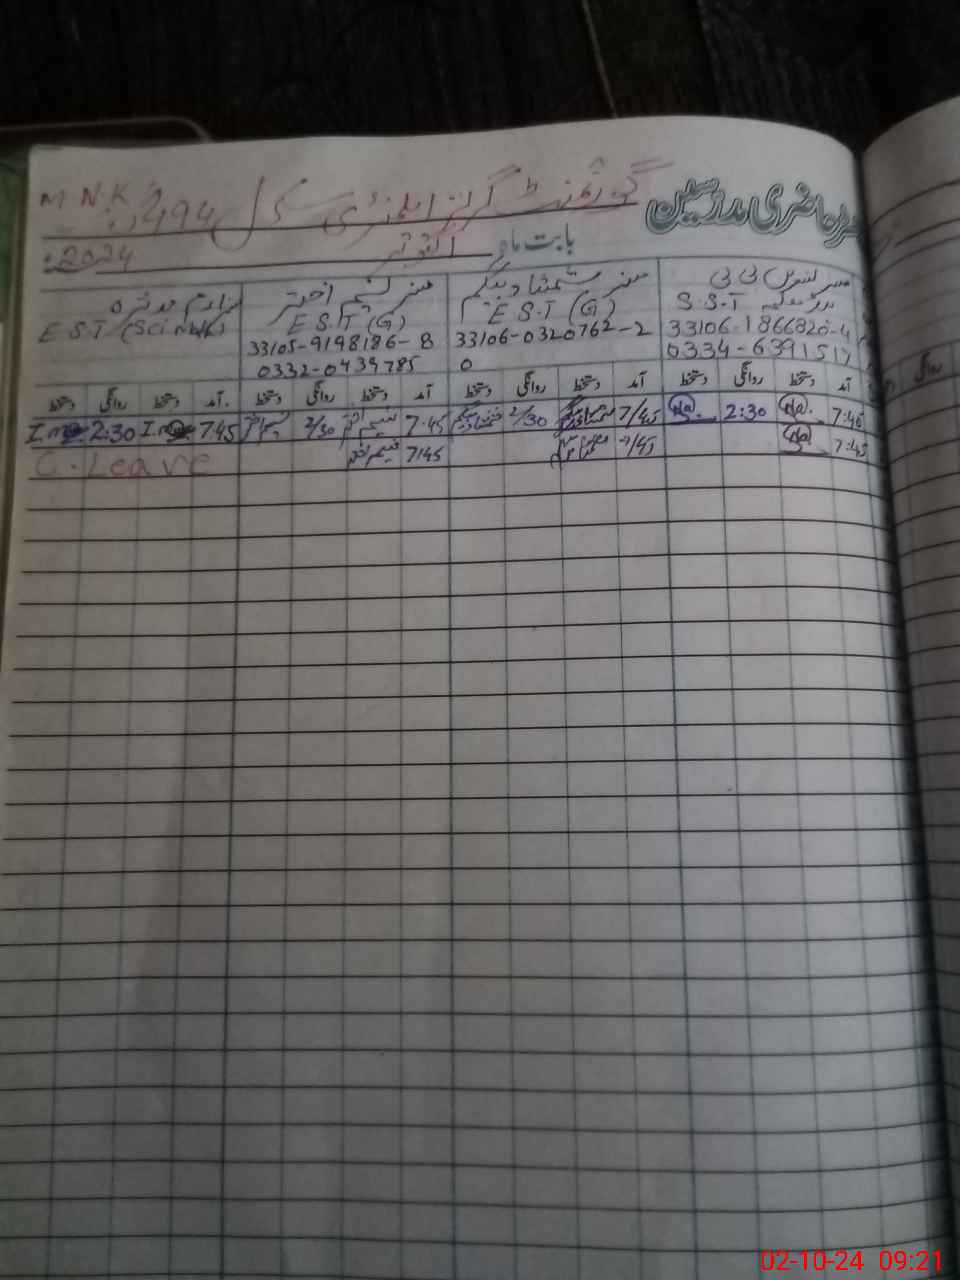 حاضری مدرسین گورنمنٹ گرلز ایلیمنٹری سکول 494 M N.K
بابت ماہ اکتوبر 2024
مسز نسرین بی بی
S.S.T
33106-1866820-4
0334-6391517
مسز شمشاد بیگم
E S.T (G)
33106-0320762-2
0
مسز نسیم اختر
E S.T (G)
33105-9198186-8
0332-0439785
E S.T (Sci
آمد دستخط روانگی دستخط آمد دستخط روانگی دستخط آمد دستخط روانگی دستخط آمد دستخط روانگی دستخط
7:45 2:30 7/45 2/30 7.45 نسیم اختر 2/30 7.45 2:30
7:45 7/45 7:45 نسیم اختر C. Leave
روانگی
02-10-24 09:21